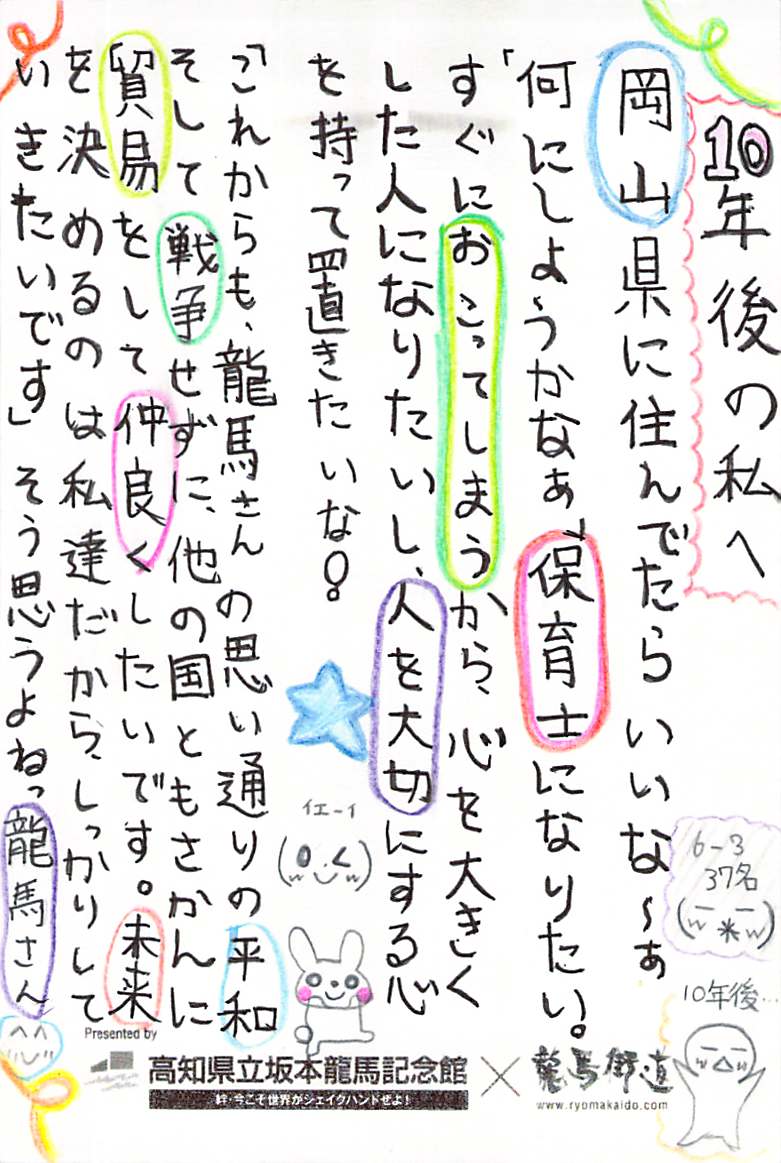 10年後の私へ
岡山県に住んでたらいいな〜ぁ
「何にしよ〜うかなぁ」保育士になりたい。
すぐにおこってしまうから、心を大きく
した人になりたいし、人を大切にする心
を持って置きたいな!
「これからも、龍馬さんの思い通りの平和
そして戦争せずに、他の国ともさかんに
貿易をして仲良くしたいです。未来
を決めるのは私達だから、しっかりして
いきたいです」そう思うよねっ龍馬さん
6-3
37名
10年後…
イエーイ
Presented by
高知県立坂本龍馬記念館
絆・今こそ世界がシェイクハンドぜよ!
×
龍馬街道
www.ryomakaido.com